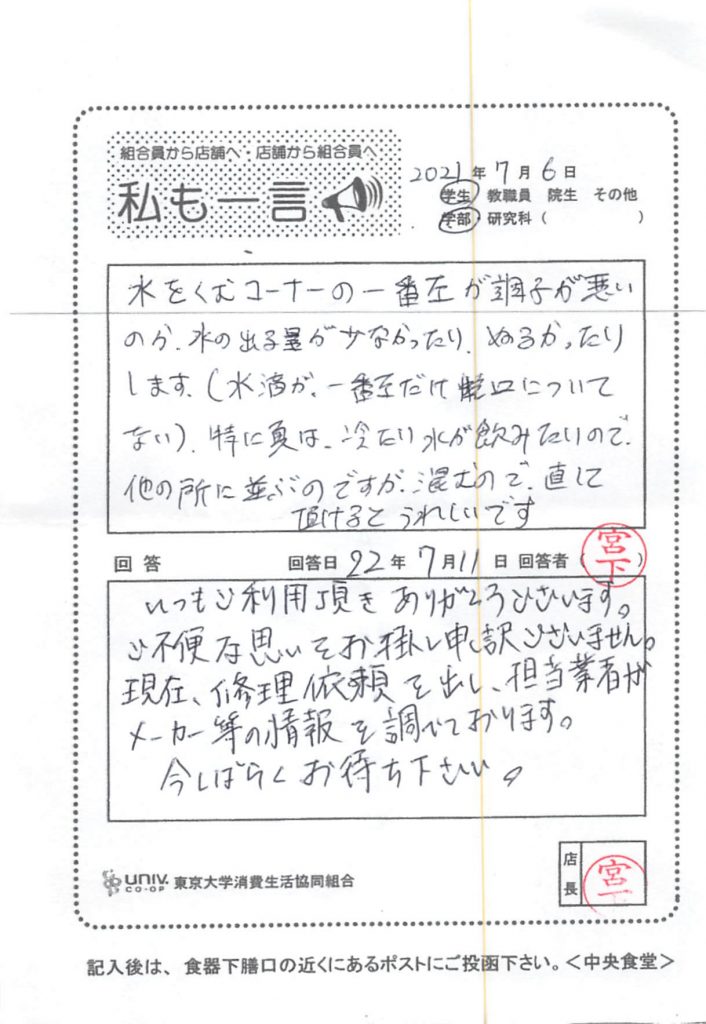 組合員から店舗へ・店舗から組合員へ
私も一言
2021年7月6日
学生 教職員 院生 その他
学部・研究科( )
水をくむコーナーの一番左が調子が悪い
のか、水の出る量が少なかったり、ぬるかったり
します。(水滴が、一番左だけ蛇口について
ない)。特に夏は、冷たい水が飲みたいので、
他の所に並ぶのですが、混むので、直して
頂けるとうれしいです
回答 回答日 22年7月11日 回答者(宮下)
いつもご利用頂きありがとうございます。
ご不便な思いをお掛し申し訳ございません。
現在、修理依頼を出し、担当業者が
メーカー等の情報を調べております。
今しばらくお待ち下さい。
UNIV. CO-OP 東京大学消費生活協同組合
店長 宮下
記入後は、食器下膳口の近くにあるポストにご投函下さい。<中央食堂>